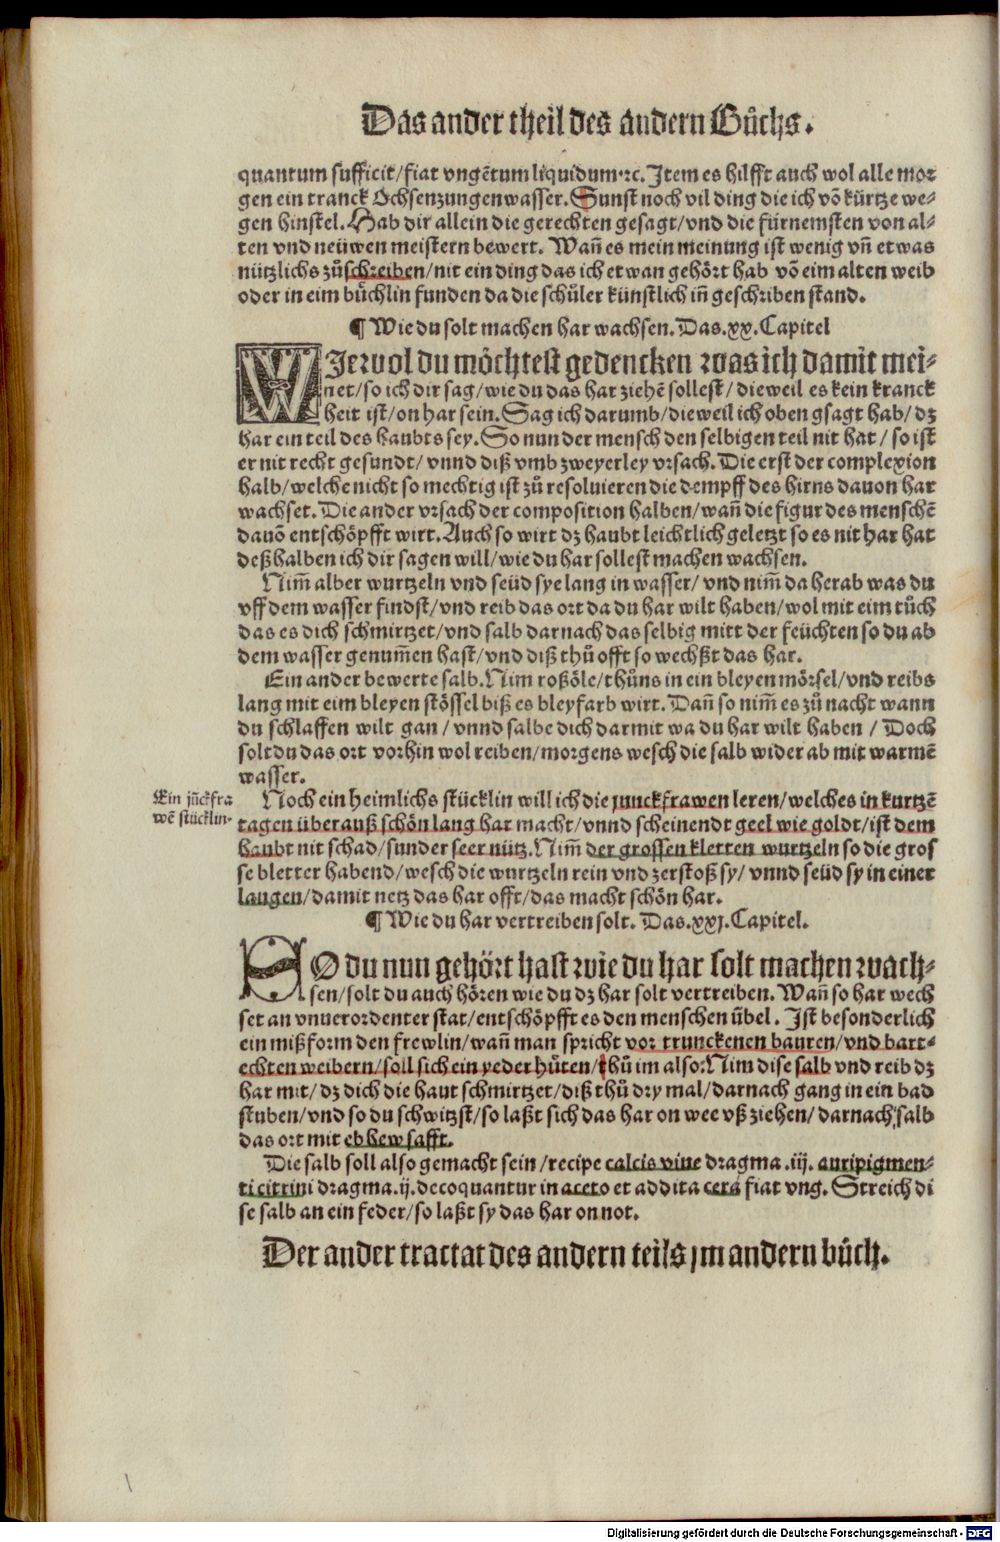 Das ander theil des andern Bůchs.
quantum sufficit/fiat vngẽtum liquidum·ꝛc. Item es hilfft auch wol alle mor
gen ein tranck Ochsenzungenwasser. Sunst noch vil ding die ich võ kürtze we-
gen hinstel. Hab dir allein die gerechten gesagt/vnd die fürnemsten von al-
ten vnd neüwen meistern bewert. Wañ es mein meinung ist wenig vñ etwas
nützlichs zůschreiben/nit ein ding das ich etwan gehört hab võ eim alten weib
oder in eim bůchlin funden da die schůler künstlich iñ geschriben stand.
¶ Wie du solt machen har wachsen. Das.xx.Capitel
WIewol du möchtest gedencken was ich damit mei-
net/so ich dir sag/wie du das har ziehẽ sollest/dieweil es kein kranck
heit ist/on har sein. Sag ich darumb/dieweil ich oben gsagt hab/dz
har ein teil des haubts sey. So nun der mensch den selbigen teil nit hat/so ist
er nit recht gesundt/vnnd diß vmb zweyerley vrsach. Die erst der complexion
halb/welche nicht so mechtig ist zů resoluieren die dempff des hirns dauon har
wachset. Die ander vrsach der composition halben/wañ die figur des menschẽ
dauõ entschöpfft wirt. Auch so wirt dz haubt leichtlich geletzt so es nit har hat
deßhalben ich dir sagen will/wie du har sollest machen wachsen.
Nim̃ alber wurtzeln vnd seüd sye lang in wasser/vnd nim̃ da herab was du
vff dem wasser findst/vnd reib das ort da du har wilt haben/wol mit eim tůch
das es dich schmirtzet/vnd salb darnach das selbig mitt der feüchten so du ab
dem wasser genum̃en hast/vnd diß thů offt so wechßt das har.
Ein ander bewerte salb. Nim roßöle/thůns in ein bleyen mörsel/vnd reibs
lang mit eim bleyen stössel biß es bleyfarb wirt. Dañ so nim̃ es zů nacht wann
du schlaffen wilt gan/vnnd salbe dich darmit wa du har wilt haben/Doch
solt du das ort vorhin wol reiben/morgens wesch die salb wider ab mit warmẽ
wasser.
Ein jũckfra
wẽ stücklin·
Noch ein heimlichs stücklin will ich die junckfrawen leren/welches in kurtzẽ
tagen überauß schön lang har macht/vnnd scheinendt geel wie goldt/ist dem
haubt nit schad/sunder seer nütz. Nim̃ der grossen kletten wurtzeln so die gros
se bletter habend/wesch die wurtzeln rein vnd zerstoß sy/vnnd seüd sy in einer
laugen/damit netz das har offt/das macht schön har.
¶ Wie du har vertreiben solt. Das.xxj.Capitel.
SO du nun gehört hast wie du har solt machen wach-
sen/solt du auch hören wie du dz har solt vertreiben. Wañ so har wech
set an vnuerordenter stat/entschöpfft es den menschen übel. Ist besonderlich
ein mißform den frewlin/wañ man spricht vor trunckenen bauren/vnd bart-
echten weibern/soll sich ein yeder hüten/thů im also: Nim dise salb vnd reib dz
har mit/dz dich die haut schmirtzet/diß thů dry mal/darnach gang in ein bad
stuben/vnd so du schwitzst/so laßt sich das har on wee vß ziehen/darnach salb
das ort mit ebhew safft.
Die salb soll also gemacht sein/recipe calcis viue dragma .iij. auripigmen-
ti citrini dragma.ij.decoquantur in aceto et addita cera fiat vng. Streich di
se salb an ein feder/so laßt sy das har on not.
Der ander tractat des andern teils jm andern bůch.
Digitalisierung gefördert durch die Deutsche Forschungsgemeinschaft - DFG